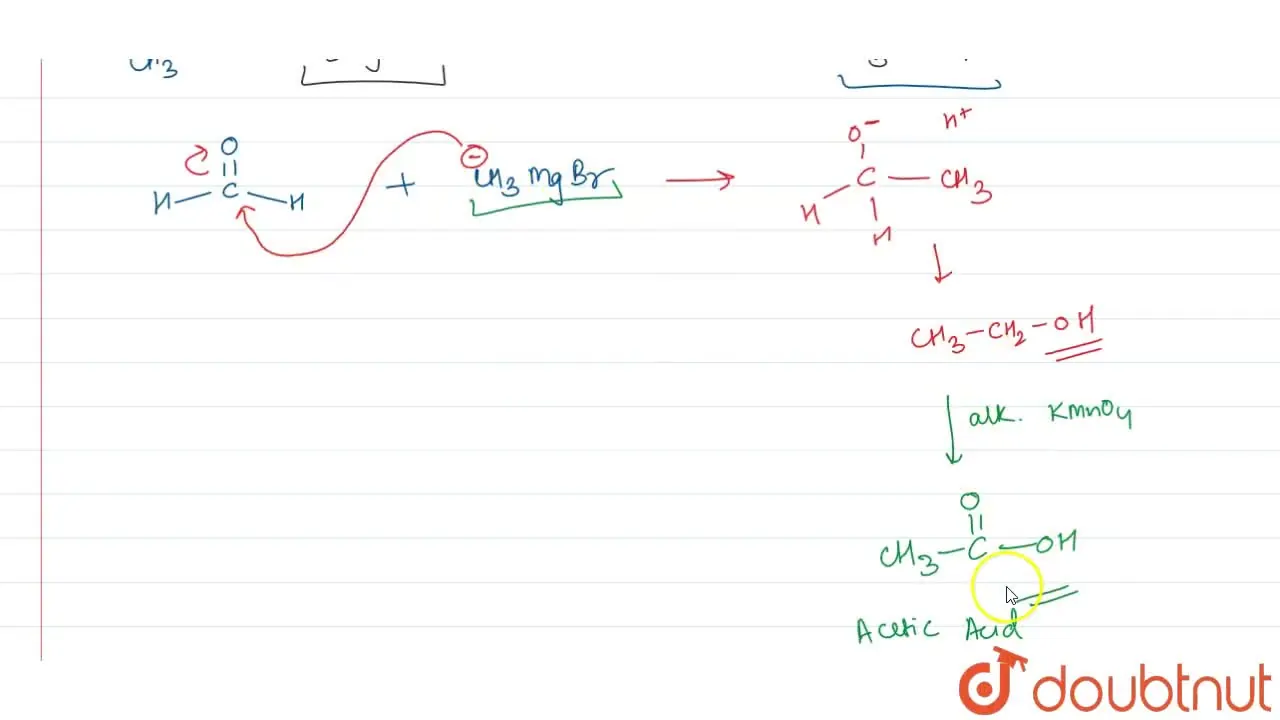 CH3
O
O⁻ H+
H C H + ⊖ CH3 Mg Br → C CH3
H
H
CH3-CH2-OH
alk. KMnO4
O
CH3-C-OH
Acetic Acid
doubtnut